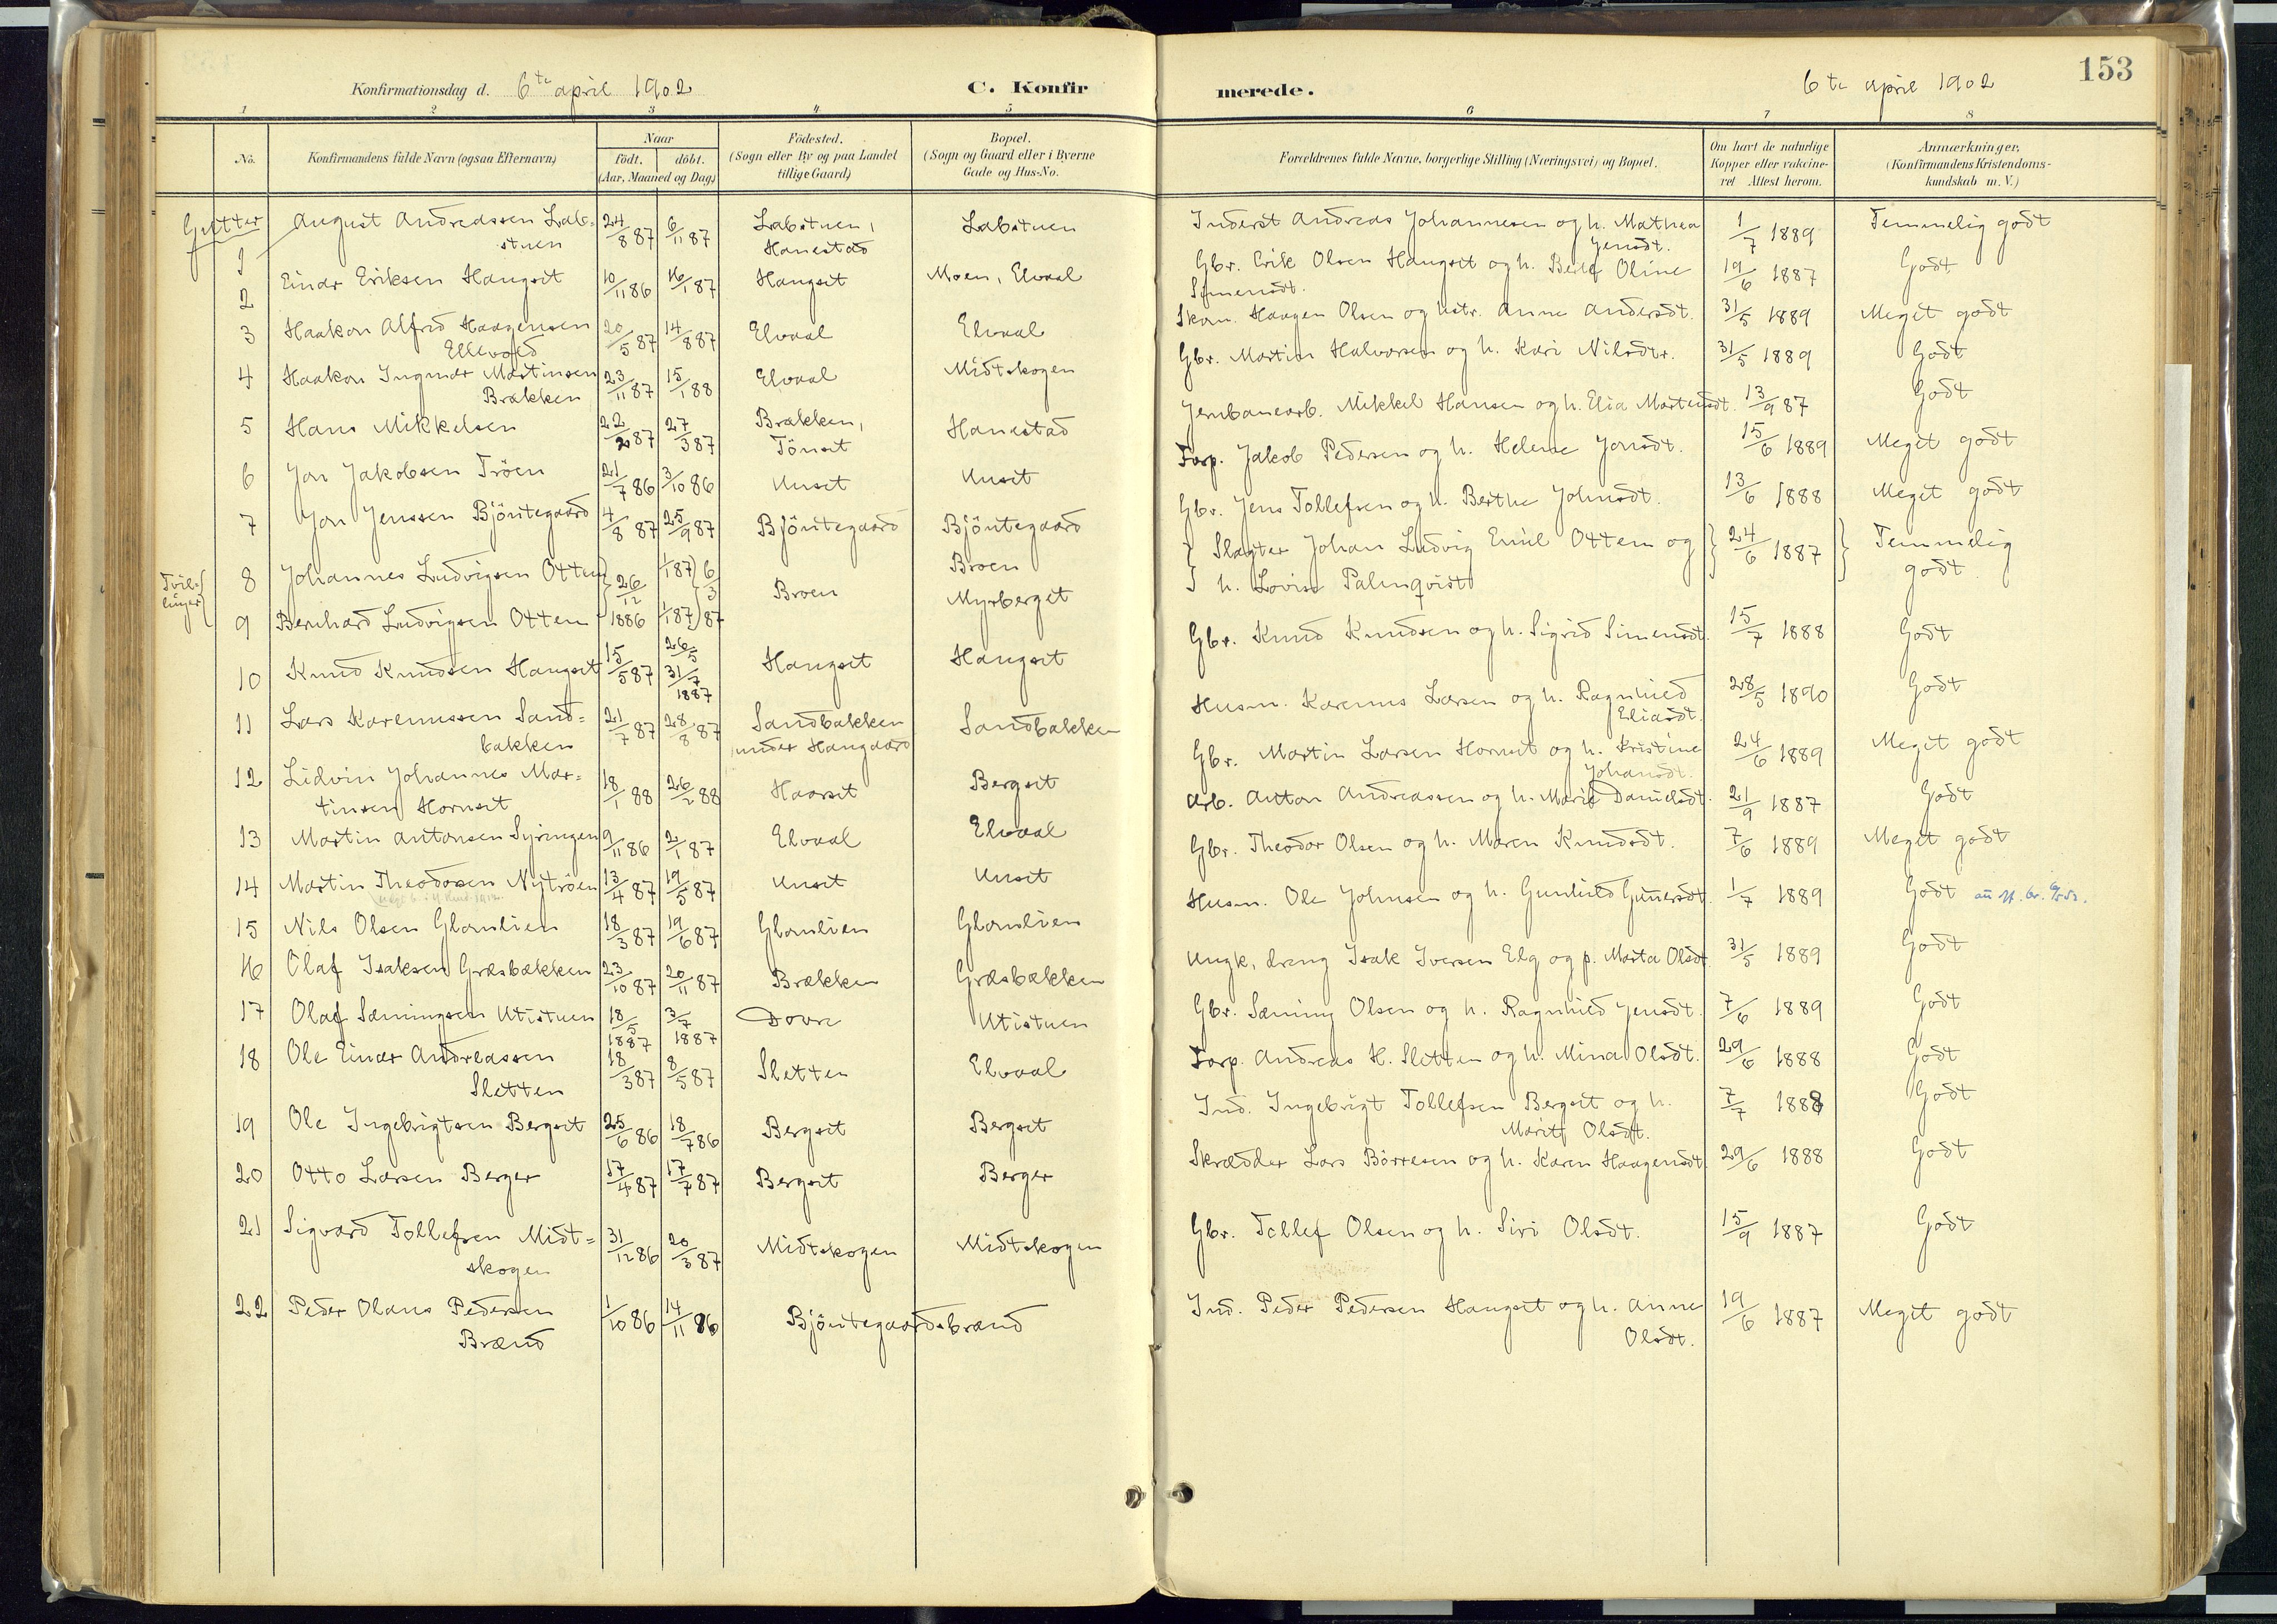 153
Konfirmationsdag d. 6te april 1902 C. Konfirmerede. 6te april 1902
1 2 3 4 5 6 7 8
No. Konfirmandens fulde Navn (ogsaa Efternavn) Naar födt. döbt. (Aar, Maaned og Dag) Födested. (Sogn eller By og paa Landet tillige Gaard) Bopæl. (Sogn og Gaard eller i Byerne Gade og Hus-No. Forældrenes fulde Navne, borgerlige Stilling (Næringsvei) og Bopæl. Om havt de naturlige Kopper eller vakcineret Attest herom. Anmærkninger. (Konfirmandens Kristendomskundskab m. V.)
Gutter
1 August Andreassen Labstuen 24/8 87 6/11 87 Labstuen, Hanestad Labstuen Inderst Andreas Johannesen og h. Mathea Jensdt. 1/7 1889 Temmelig godt
2 Einar Eriksen Haugset 10/11 86 16/1 87 Haugset Moen, Elvaal Gbr. Erik Olsen Haugset og h. Oline Simensdt. 19/6 1887 Godt
3 Haakon Alfred Haagensen Ellevold 20/5 87 14/8 87 Elvaal Elvaal Skom. Haagen Olsen og hstr. Anne Andersdt. 31/5 1889 Meget godt
4 Haakon Ingmar Martinsen Brækken 23/11 87 15/1 88 Elvaal Midtskogen Gbr. Martin Halvorsen og h. Kari Nilsdtr. 31/5 1889 Godt
5 Hans Mikkelsen 22/2 87 27/3 87 Brækken, Tönset Hanestad Jernbanearb. Mikkel Hansen og h. Elia Mortensdt. 13/9 87 Godt
6 Jon Jakobsen Tröen 21/7 86 3/10 86 Unset Unset Forp. Jakob Pedersen og h. Helene Jonsdt. 15/6 1889 Meget godt
7 Jon Jenssen Bjöntegaard 4/8 87 25/9 87 Bjöntegaard Bjöntegaard Gbr. Jens Tollefsen og h. Berthe Johnsdt. 13/6 1888 Meget godt
Tvillinger
8 Johannes Ludvigsen Ottem 26/12 1886 1/1 87 6/3 87 Broen Broen Slagter Johan Ludvig Emil Ottem og h. Lovise Palmqvist 24/6 1887 Temmelig godt
9 Bernhard Ludvigsen Ottem 1/1 87 Myrberget
10 Knud Knudsen Haugset 15/5 87 26/5 31/7 1887 Haugset Haugset Gbr. Knud Knudsen og h. Sigrid Simensdt. 15/7 1888 Godt
11 Lars Karenussen Sandbakken 21/7 87 28/8 87 Sandbakken under Haugaard Sandbakken Husm. Karenus Larsen og h. Ragnhild Eliasdt. 28/5 1890 Godt
12 Lidvin Johannes Martinsen Hornset 18/1 88 26/2 88 Haarset Bergset Gbr. Martin Larsen Hornset og h. Kristine Johansdt. 24/6 1889 Meget godt
13 Martin Antonsen Syringen 9/11 86 2/1 87 Elvaal Elvaal Arb. Anton Andreassen og h. Marie Danielsdt. 21/9 1887 Godt
14 Martin Theodorsen Nytröen 13/4 87 19/5 87 Unset Unset Gbr. Theodor Olsen og h. Maren Knudsdt. 7/6 1889 Meget godt
15 Nils Olsen Glomlien 18/3 87 19/6 87 Glomlien Glomlien Husm. Ole Johnsen og h. Gunhild Gunersdt. 1/7 1889 Godt
16 Olaf Isaksen Græsbækken 23/10 87 20/11 87 Brækken Græsbækken Ungk., dreng Isak Iversen Elg og p. Marta Olsdt. 31/5 1889 Godt
17 Olaf Sæmingsen Utistuen 18/5 1887 3/7 1887 Dovre Utistuen Gbr. Sæming Olsen og h. Ragnhild Jensdt. 7/6 1889 Godt
18 Ole Einar Andreassen Sletten 18/3 87 8/5 87 Sletten Elvaal Forp. Andreas H. Sletten og h. Mina Olsdt. 29/6 1888 Godt
19 Ole Ingebrigtsen Bergset 25/6 86 18/7 86 Bergset Bergset Ind. Ingebrigt Tollefsen Bergset og h. Maritt Olsdt. 7/7 1888 Godt
20 Otto Larsen Berger 17/4 87 17/7 87 Bergset Berger Skrædder Lars Börresen og h. Karen Haagensdt. 29/6 1888 Godt
21 Sigvard Tollefsen Midtskogen 31/12 86 20/3 87 Midtskogen Midtskogen Gbr. Tollef Olsen og h. Siri Olsdt. 15/9 1887 Godt
22 Peder Olaus Pedersen Brænd 1/10 86 14/11 86 Bjöntegaardsbrænd Ind. Peder Pedersen Haugset og h. Anne Olsdt. 19/6 1887 Meget godt